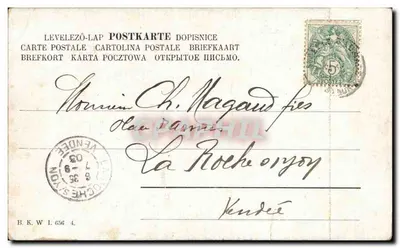 LEVELEZŐ-LAP POSTKARTE DOPISNICE
CARTE POSTALE CARTOLINA POSTALE BRIEFKAART
BREFKORT KARTA POCZTOWA ОТКРЫТОЕ ПИСЬМО.
Monsieur Ch. Magaud fils
La Roche s/yon
Vendée
ROCHE-S-YON
VENDÉE
6 35
7 -9
03
5
B. K. W. I. 656 4.